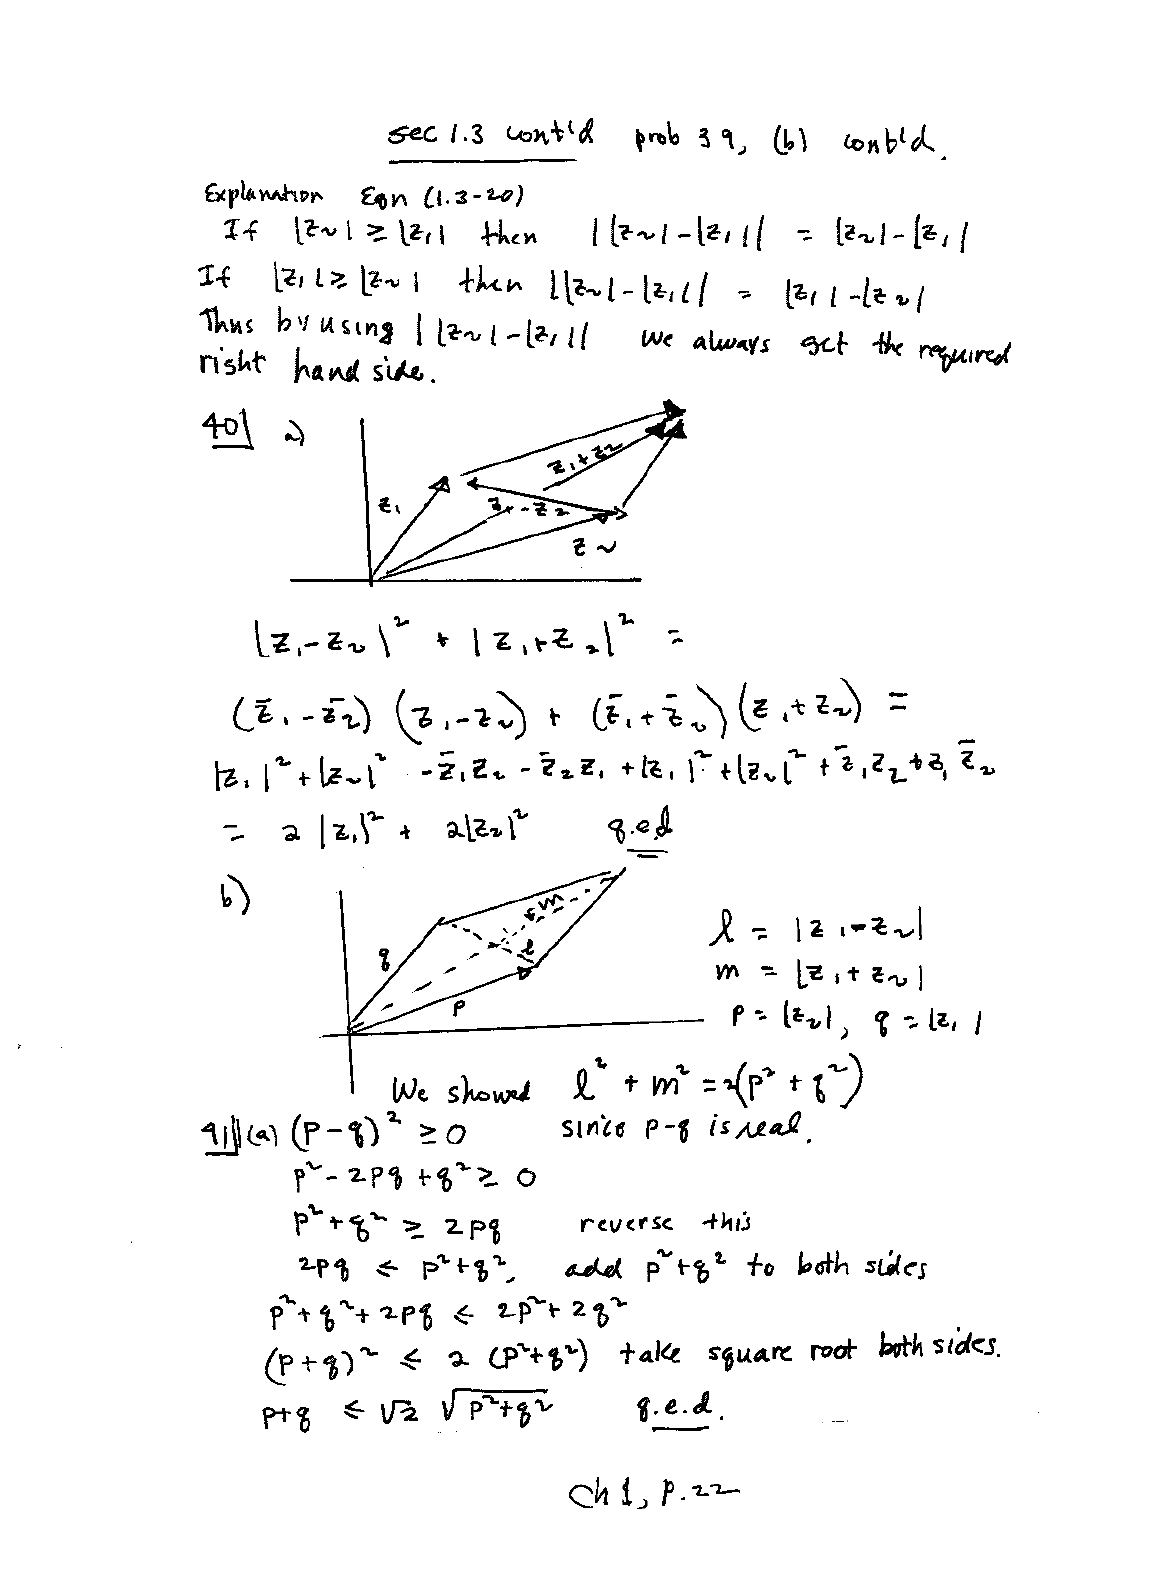 sec 1.3 cont'd prob 39, (b) cont'd.
Explanation Eqn (1.3-20)
If |z₂| ≥ |z₁| then ||z₂|-|z₁|| = |z₂|-|z₁|
If |z₁| ≥ |z₂| then ||z₂|-|z₁|| = |z₁|-|z₂|
Thus by using ||z₂|-|z₁|| we always get the required
right hand side.
40] a)
z₁+z₂
z₁
z₁-z₂
z₂
|z₁-z₂|² + |z₁+z₂|² =
(z̄₁-z̄₂)(z₁-z₂) + (z̄₁+z̄₂)(z₁+z₂) =
|z₁|²+|z₂|² -z̄₁z₂ -z̄₂z₁ +|z₁|²+|z₂|² +z̄₁z₂+z₁z̄₂
= 2|z₁|² + 2|z₂|² q.e.d
b)
m
l
q
p
l = |z₁-z₂|
m = |z₁+z₂|
p = |z₂|, q = |z₁|
We showed l² + m² = 2(p² + q²)
41] (a) (p-q)² ≥ 0 since p-q is real.
p² - 2pq + q² ≥ 0
p² + q² ≥ 2pq reverse this
2pq ≤ p²+q², add p²+q² to both sides
p²+q²+2pq ≤ 2p²+2q²
(p+q)² ≤ 2 (p²+q²) take square root both sides.
p+q ≤ √2 √p²+q² q.e.d.
Ch 1, p.22